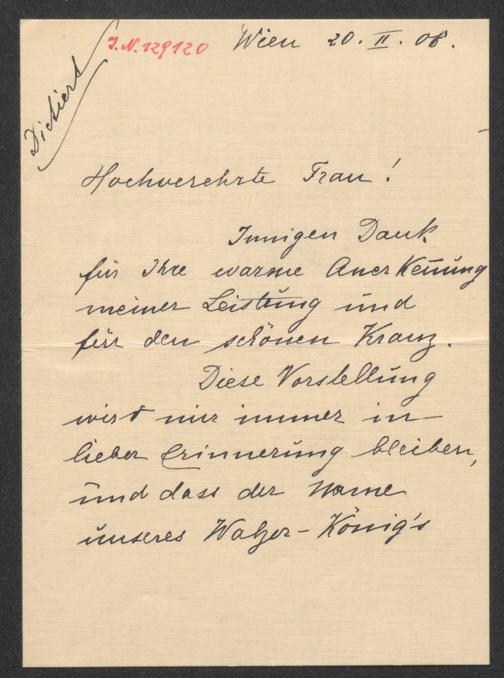 J.N. 129120
Wien 20. II. 08.
Dictiert
Hochverehrte Frau!
Innigen Dank
für Ihre warme Anerkeñung
meiner Leistung und
für den schönen Kranz.
Diese Vorstellung
wird mir immer in
lieber Erinnerung bleiben,
und dass der Name
unseres Walzer-König's